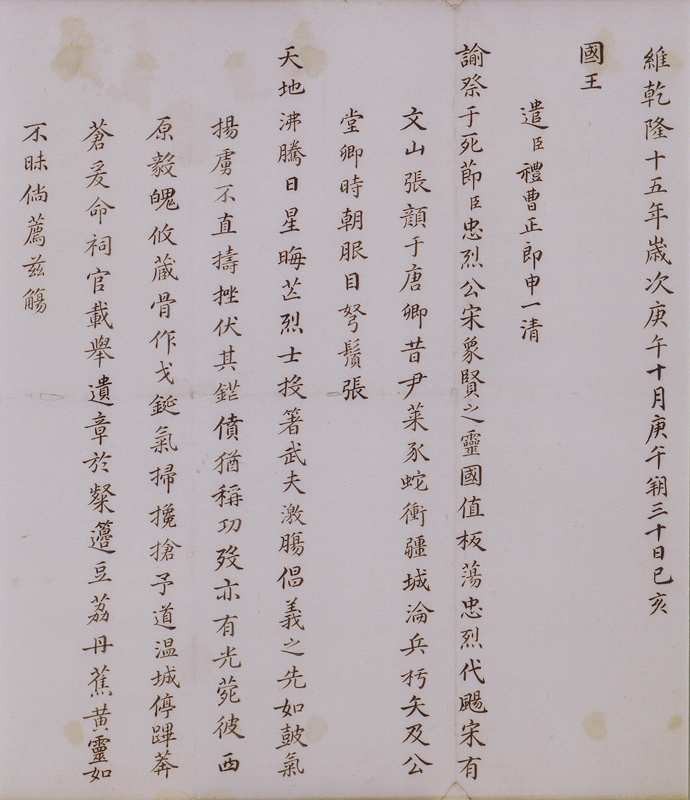 維乾隆十五年歲次庚午十月庚午朔三十日己亥
國王
遣臣禮曹正郎申一清
諭祭于死節臣忠烈公宋象賢之靈國值板蕩忠烈代賜宋有
文山張顔于唐卿昔尹萊豕蛇衝疆城淪兵朽矢及公
堂卿時朝服目努鬚張
天地沸騰日星晦芒烈士投箸武夫激膓倡義之先如鼓氣
揚虜不直擣挫伏其鎧僨猶稱功歿亦有光菀彼西
原毅魄攸藏骨作戈鋋氣掃攙搶予道温城停蹕莽
蒼爰命祠官載舉遺章於粲籩豆荔丹蕉黃靈如
不昧倘薦茲觴